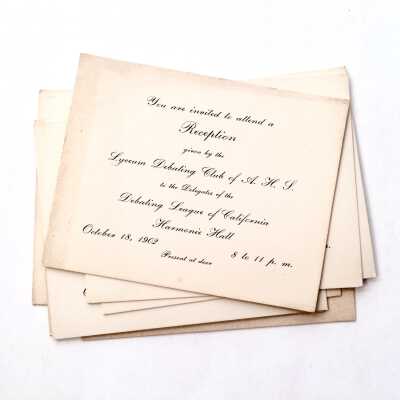 You are invited to attend a
Reception
given by the
Lyceum Debating Club of A. H. S.
to the Delegates of the
Debating League of California
Harmonie Hall
October 18, 1902 8 to 11 p. m.
Present at door